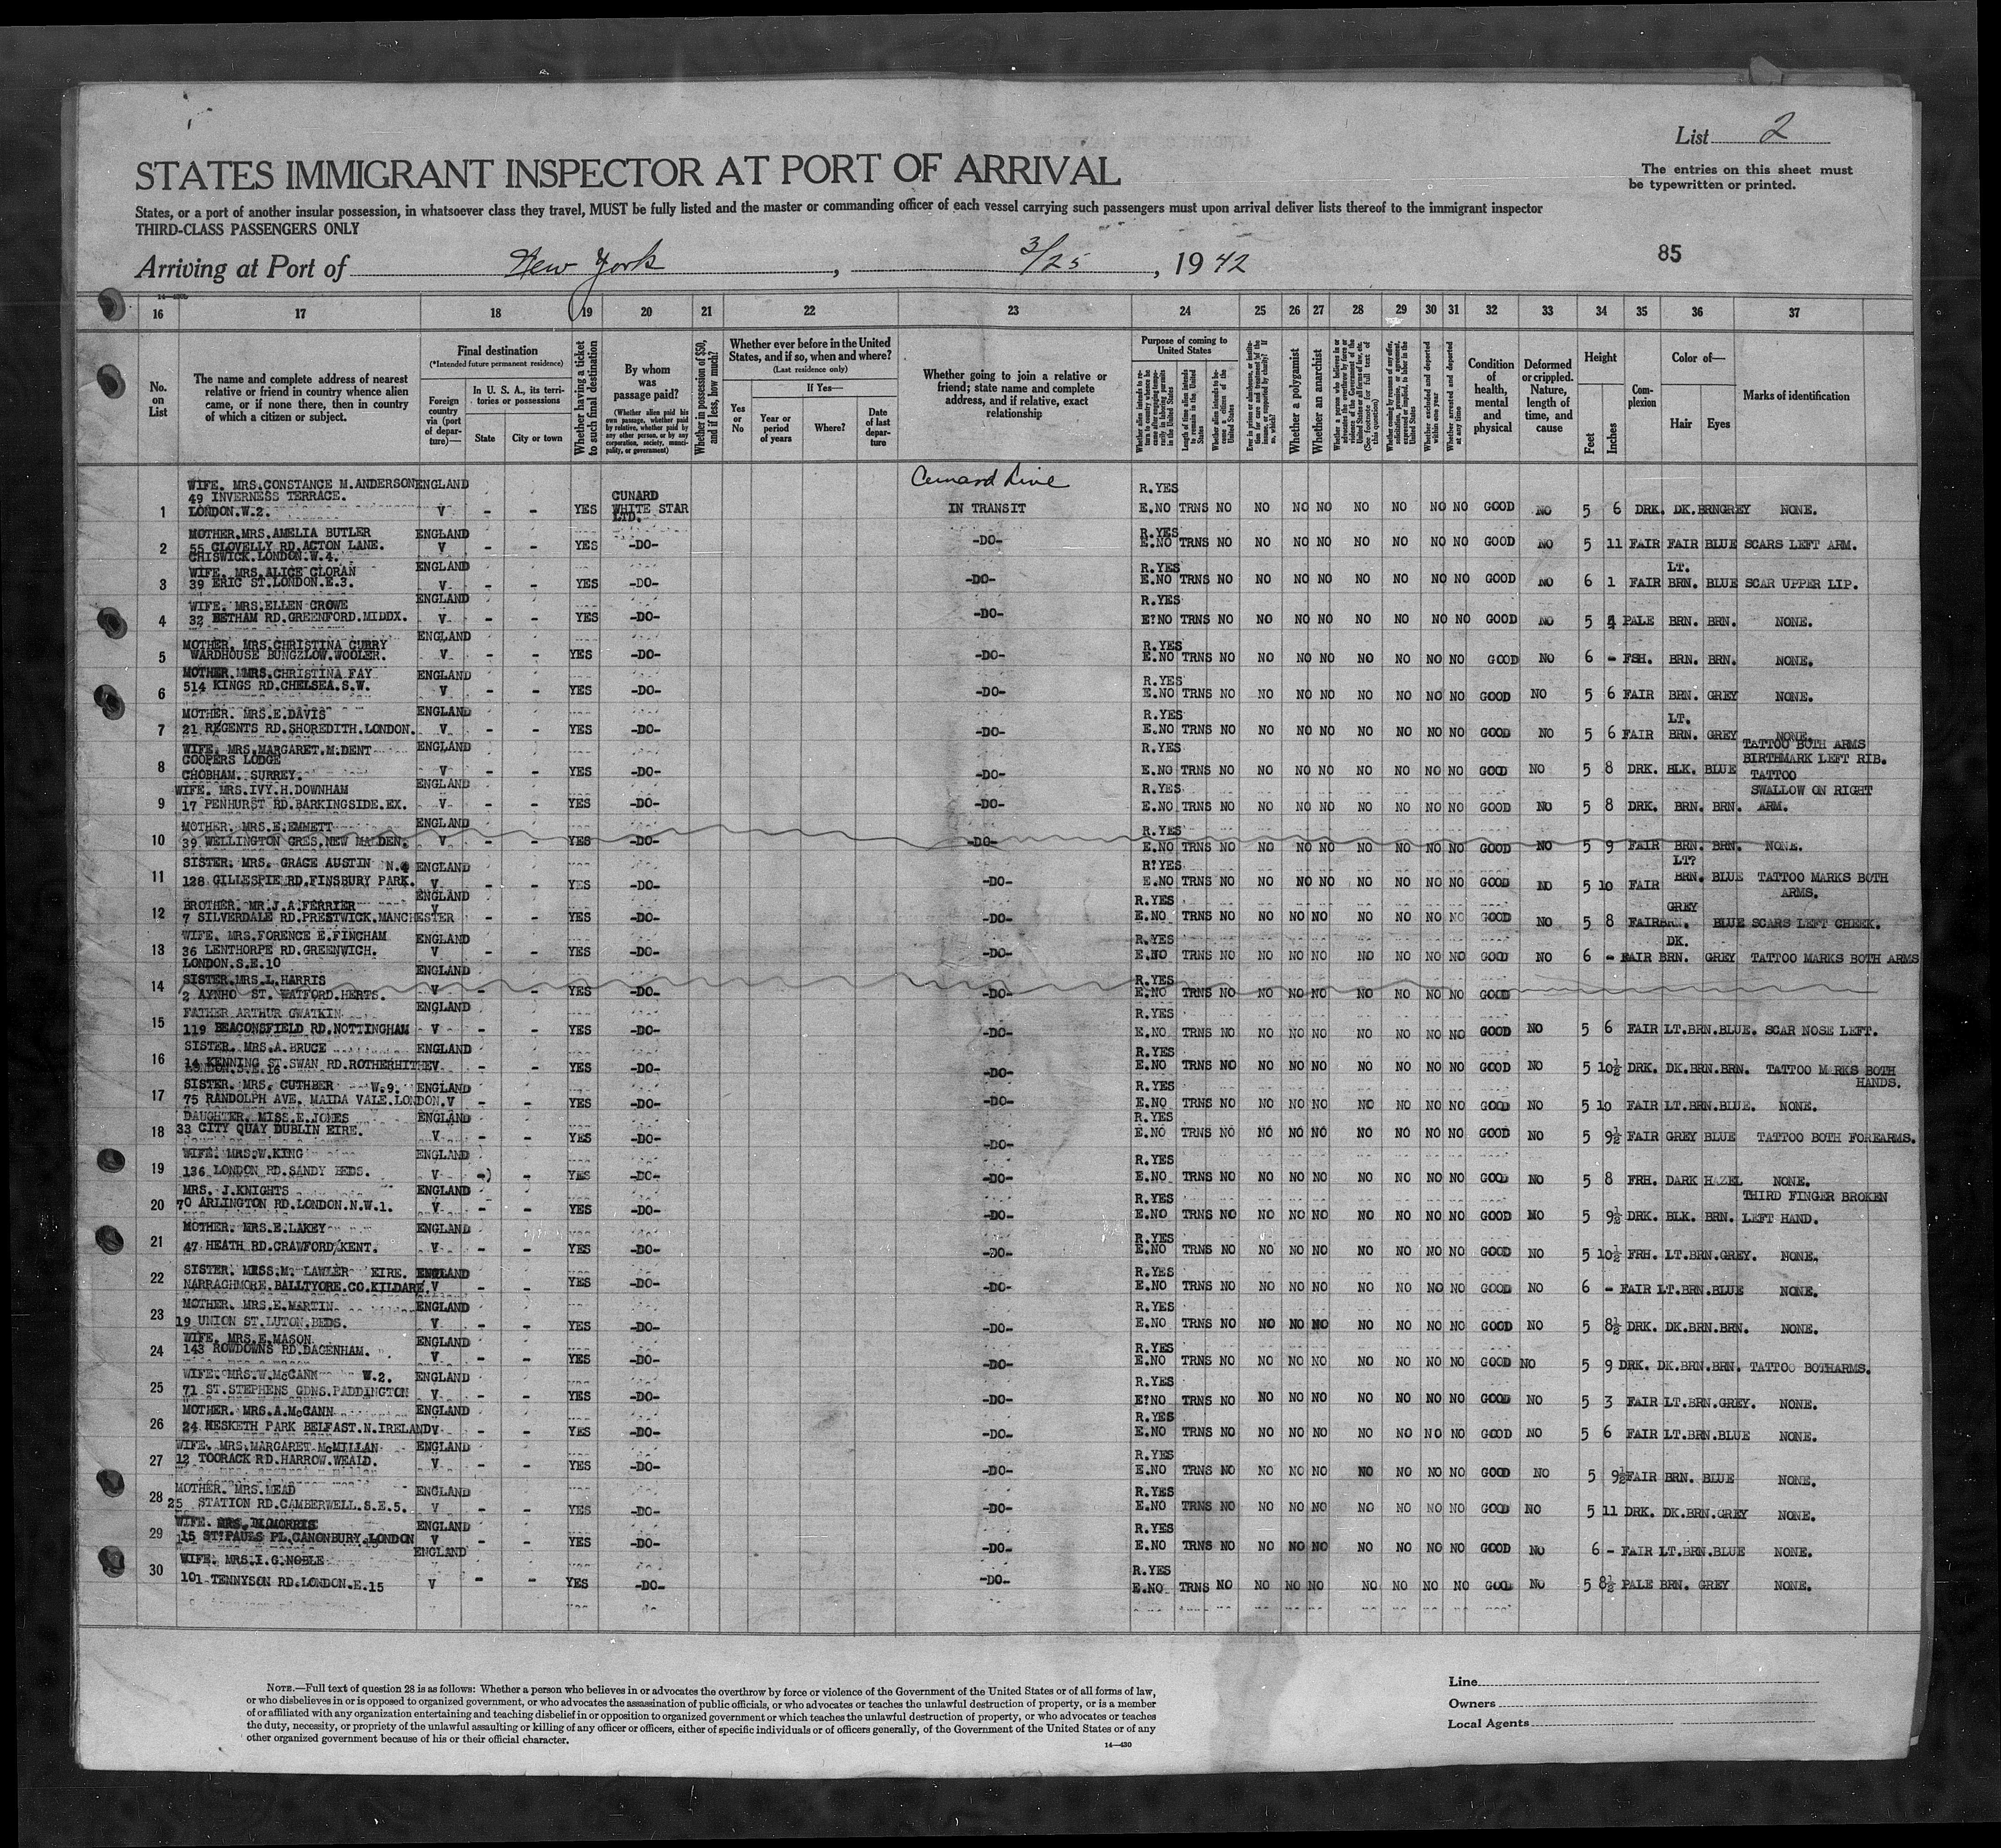 List 2
STATES IMMIGRANT INSPECTOR AT PORT OF ARRIVAL
The entries on this sheet must
be typewritten or printed.
States, or a port of another insular possession, in whatsoever class they travel, MUST be fully listed and the master or commanding officer of each vessel carrying such passengers must upon arrival deliver lists thereof to the immigrant inspector
THIRD-CLASS PASSENGERS ONLY
Arriving at Port of New York, 3/25, 1942
85
16 17 18 19 20 21 22 23 24 25 26 27 28 29 30 31 32 33 34 35 36 37
No. on List
The name and complete address of nearest relative or friend in country whence alien came, or if none there, then in country of which a citizen or subject.
Final destination
(*Intended future permanent residence)
Foreign country via (port of departure)—
In U. S. A., its territories or possessions
State
City or town
Whether having a ticket to such final destination
By whom was passage paid?
(Whether alien paid his own passage, whether paid by relative, whether paid by any other person, or by any corporation, society, municipality, or government)
Whether in possession of $50, and if less, how much?
Whether ever before in the United States, and if so, when and where?
(Last residence only)
Yes or No
If Yes—
Year or period of years
Where?
Date of last departure
Whether going to join a relative or friend; state name and complete address, and if relative, exact relationship
Purpose of coming to United States
Whether a polygamist
Whether an anarchist
Condition of health, mental and physical
Deformed or crippled. Nature, length of time, and cause
Height
Feet
Inches
Complexion
Color of—
Hair
Eyes
Marks of identification
Cunard Line
1 WIFE. MRS.CONSTANCE M.ANDERSON ENGLAND R.YES
49 INVERNESS TERRACE. CUNARD
LONDON.W.2. V - - YES WHITE STAR LTD. IN TRANSIT E.NO TRNS NO NO NO NO NO NO NO NO GOOD NO 5 6 DRK. DK.BRN GREY NONE.
2 MOTHER.MRS.AMELIA BUTLER ENGLAND R.YES
55 CLOVELLY RD.ACTON LANE. V - - YES -DO- -DO- E.NO TRNS NO NO NO NO NO NO NO NO GOOD NO 5 11 FAIR FAIR BLUE SCARS LEFT ARM.
CHISWICK.LONDON.W.4.
3 WIFE. MRS.ALICE CLORAN ENGLAND R.YES LT.
39 ERIC ST.LONDON.E.3. V - - YES -DO- -DO- E.NO TRNS NO NO NO NO NO NO NO NO GOOD NO 6 1 FAIR BRN. BLUE SCAR UPPER LIP.
4 WIFE. MRS.ELLEN CROWE ENGLAND R.YES
32 BETHAM RD.GREENFORD.MIDDX. V - - YES -DO- -DO- E?NO TRNS NO NO NO NO NO NO NO NO GOOD NO 5 4 PALE BRN. BRN. NONE.
5 MOTHER. MRS.CHRISTINA CURRY ENGLAND R.YES
WARDHOUSE BUNGZLOW.WOOLER. V - - YES -DO- -DO- E.NO TRNS NO NO NO NO NO NO NO NO GOOD NO 6 - FSH. BRN. BRN. NONE.
6 MOTHER.MMRS.CHRISTINA FAY ENGLAND R.YES
514 KINGS RD.CHELSEA.S.W. V - - YES -DO- -DO- E.NO TRNS NO NO NO NO NO NO NO NO GOOD NO 5 6 FAIR BRN. GREY NONE.
7 MOTHER. MRS.E.DAVIS ENGLAND R.YES LT.
21 REGENTS RD.SHOREDITH.LONDON. V - - YES -DO- -DO- E.NO TRNS NO NO NO NO NO NO NO NO GOOD NO 5 6 FAIR BRN. GREY NONE.
8 WIFE. MRS.MARGARET.M.DENT ENGLAND R.YES TATTOO BOTH ARMS
COOPERS LODGE BIRTHMARK LEFT RIB.
CHOBHAM. SURREY. V - - YES -DO- -DO- E.NO TRNS NO NO NO NO NO NO NO NO GOOD NO 5 8 DRK. BLK. BLUE TATTOO
9 WIFE. MRS.IVY.H.DOWNHAM ENGLAND R.YES SWALLOW ON RIGHT
17 PENHURST RD.BARKINGSIDE.EX. V - - YES -DO- -DO- E.NO TRNS NO NO NO NO NO NO NO NO GOOD NO 5 8 DRK. BRN. BRN. ARM.
10 MOTHER. MRS.E.EMMETT ENGLAND R.YES
39 WELLINGTON CRES.NEW MALDEN. V - - YES -DO- -DO- E.NO TRNS NO NO NO NO NO NO NO NO GOOD NO 5 9 FAIR BRN. BRN. NONE.
11 SISTER. MRS. GRACE AUSTIN N.4 ENGLAND R?YES LT?
128 GILLESPIE RD.FINSBURY PARK. V - - YES -DO- -DO- E.NO TRNS NO NO NO NO NO NO NO NO GOOD NO 5 10 FAIR BRN. BLUE TATTOO MARKS BOTH
ARMS.
12 BROTHER. MR.J.A.FERRIER ENGLAND V R.YES GREY
7 SILVERDALE RD.PRESTWICK.MANCHESTER - - YES -DO- -DO- E.NO TRNS NO NO NO NO NO NO NO NO GOOD NO 5 8 FAIR BRN. BLUE SCARS LEFT CHEEK.
13 WIFE. MRS.FORENCE E.FINCHAM ENGLAND R.YES DK.
36 LENTHORPE RD.GREENWICH. V - - YES -DO- -DO- E.NO TRNS NO NO NO NO NO NO NO NO GOOD NO 6 - FAIR BRN. GREY TATTOO MARKS BOTH ARMS
LONDON.S.E.10
14 SISTER.MRS.L.HARRIS ENGLAND R.YES
2 AYNHO ST. WATFORD.HERTS. V - - YES -DO- -DO- E.NO TRNS NO NO NO NO NO NO NO NO GOOD
15 FATHER ARTHUR GWATKIN ENGLAND R.YES
119 BEACONSFIELD RD.NOTTINGHAM V - - YES -DO- -DO- E.NO TRNS NO NO NO NO NO NO NO NO GOOD NO 5 6 FAIR LT.BRN.BLUE. SCAR NOSE LEFT.
16 SISTER. MRS.A.BRUCE ENGLAND R.YES
14 KENNING ST.SWAN RD.ROTHERHITHE V - - YES -DO- -DO- E.NO TRNS NO NO NO NO NO NO NO NO GOOD NO 5 10½ DRK. DK.BRN.BRN. TATTOO MARKS BOTH
LONDON.S.E.16 HANDS.
17 SISTER. MRS. CUTHBER W.9. ENGLAND R.YES
75 RANDOLPH AVE. MAIDA VALE.LONDON.V - - YES -DO- -DO- E.NO TRNS NO NO NO NO NO NO NO NO GOOD NO 5 10 FAIR LT.BRN.BLUE. NONE.
18 DAUGHTER. MISS.E.JONES ENGLAND R.YES
33 CITY QUAY DUBLIN EIRE. V - - YES -DO- -DO- E.NO TRNS NO NO NO NO NO NO NO NO GOOD NO 5 9½ FAIR GREY BLUE TATTOO BOTH FOREARMS.
19 WIFE. MRS.W.KING ENGLAND R.YES
136 LONDON RD.SANDY BEDS. V -) - YES -DO- -DO- E.NO TRNS NO NO NO NO NO NO NO NO GOOD NO 5 8 FRH. DARK HAZEL NONE.
20 MRS. J.KNIGHTS ENGLAND R.YES THIRD FINGER BROKEN
70 ARLINGTON RD.LONDON.N.W.1. V - - YES -DO- -DO- E.NO TRNS NO NO NO NO NO NO NO NO GOOD NO 5 9½ DRK. BLK. BRN. LEFT HAND.
21 MOTHER. MRS.E.LAKEY ENGLAND R.YES
47 HEATH RD.CRAWFORD/KENT. V - - YES -DO- -DO- E.NO TRNS NO NO NO NO NO NO NO NO GOOD NO 5 10½ FRH. LT.BRN.GREY. NONE.
22 SISTER. MISS.M. LAWLER EIRE. ENGLAND R.YES
NARRAGHMORE.BALLTYORE.CO.KILDARE. V YES -DO- -DO- E.NO TRNS NO NO NO NO NO NO NO NO GOOD NO 6 - FAIR LT.BRN.BLUE NONE.
23 MOTHER. MRS.E.MARTIN ENGLAND R.YES
19 UNION ST.LUTON.BEDS. V - - YES -DO- -DO- E.NO TRNS NO NO NO NO NO NO NO NO GOOD NO 5 8½ DRK. DK.BRN.BRN. NONE.
24 WIFE. MRS.E.MASON ENGLAND R.YES
143 ROWDOWNS RD.DAGENHAM. V - - YES -DO- -DO- E.NO TRNS NO NO NO NO NO NO NO NO GOOD NO 5 9 DRK. DK.BRN.BRN. TATTOO BOTHARMS.
25 WIFE. MRS.W.McCANN W.2. ENGLAND R.YES
71 ST.STEPHENS GDNS.PADDINGTON V - - YES -DO- -DO- E?NO TRNS NO NO NO NO NO NO NO NO GOOD NO 5 3 FAIR LT.BRN.GREY. NONE.
26 MOTHER. MRS.A.McCANN ENGLAND R.YES
24 HESKETH PARK BELFAST.N.IRELAND V - - YES -DO- -DO- E.NO TRNS NO NO NO NO NO NO NO NO GOOD NO 5 6 FAIR LT.BRN.BLUE NONE.
27 WIFE. MRS.MARGARET McMILLAN ENGLAND R.YES
12 TOORACK RD.HARROW.WEALD. V - - YES -DO- -DO- E.NO TRNS NO NO NO NO NO NO NO NO GOOD NO 5 9½ FAIR BRN. BLUE NONE.
28 MOTHER. MRS.MEAD ENGLAND R.YES
25 STATION RD.CAMBERWELL.S.E.5. V - - YES -DO- -DO- E.NO TRNS NO NO NO NO NO NO NO NO GOOD NO 5 11 DRK. DK.BRN.GREY NONE.
29 WIFE. MRS.M.MORRIS ENGLAND R.YES
15 ST?PAULS PL.CANONBURY.LONDON V - - YES -DO- -DO- E.NO TRNS NO NO NO NO NO NO NO NO GOOD NO 6 - FAIR LT.BRN.BLUE NONE.
30 WIFE. MRS.I.G.NOBLE ENGLAND R.YES
101 TENNYSON RD.LONDON.E.15 V - - YES -DO- -DO- E.NO TRNS NO NO NO NO NO NO NO NO GOOD NO 5 8½ PALE BRN. GREY NONE.
NOTE.—Full text of question 28 is as follows: Whether a person who believes in or advocates the overthrow by force or violence of the Government of the United States or of all forms of law,
or who disbelieves in or is opposed to organized government, or who advocates the assassination of public officials, or who advocates or teaches the unlawful destruction of property, or is a member
of or affiliated with any organization entertaining and teaching disbelief in or opposition to organized government or which teaches the unlawful destruction of property, or who advocates or teaches
the duty, necessity, or propriety of the unlawful assaulting or killing of any officer or officers, either of specific individuals or of officers generally, of the Government of the United States or of any
other organized government because of his or their official character.
14—430
Line
Owners
Local Agents